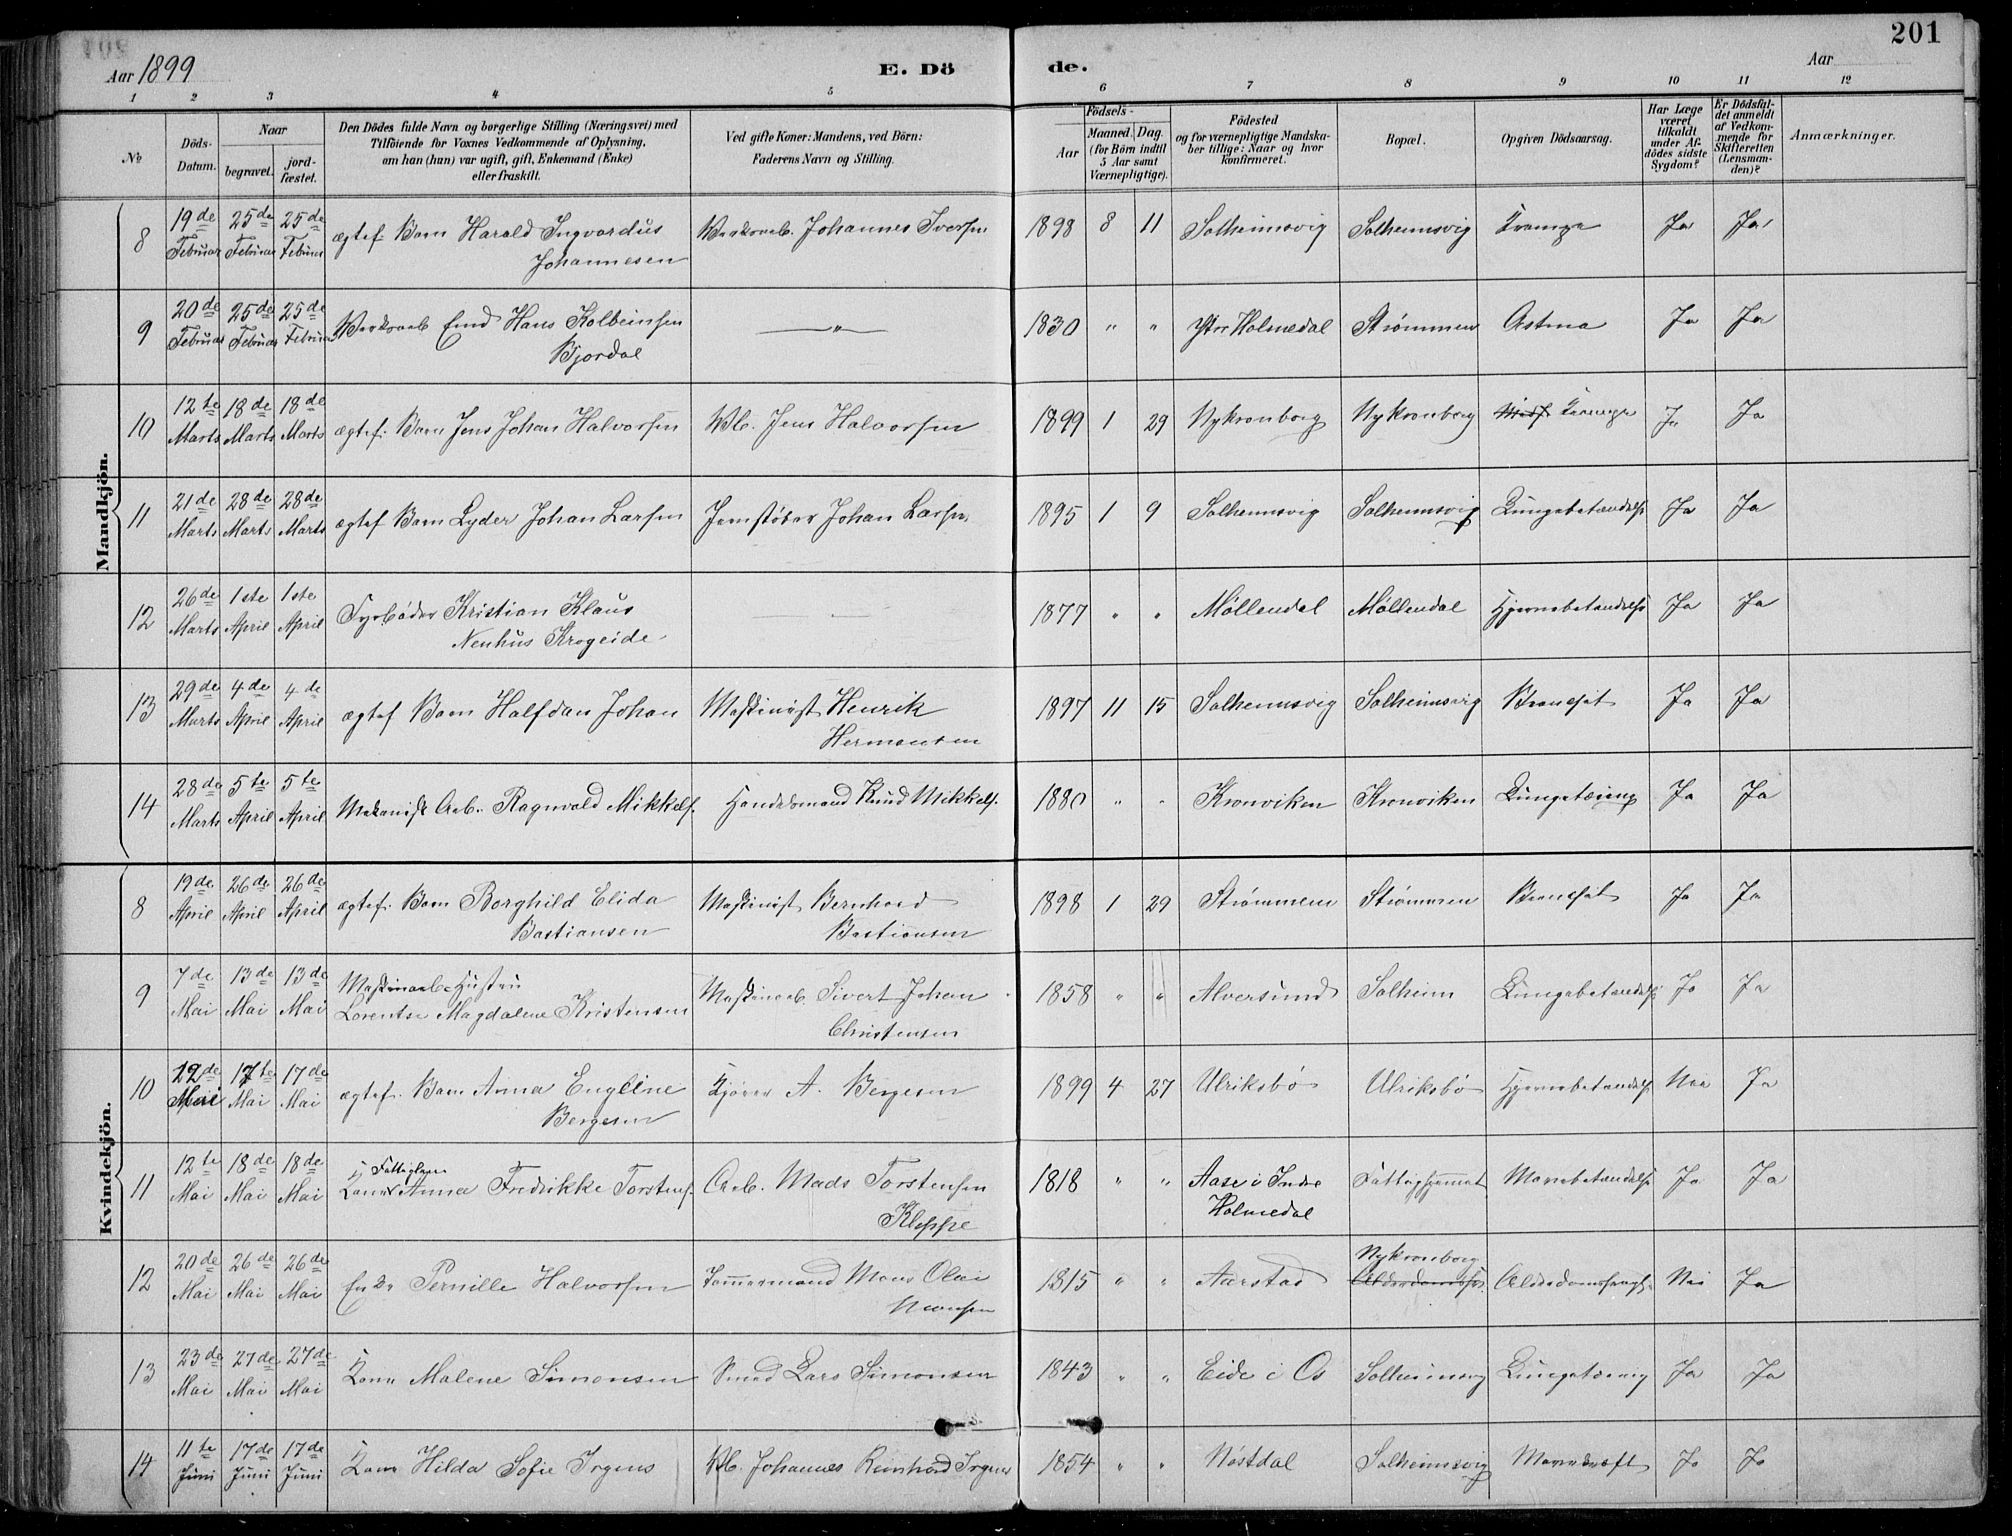 201
Aar 1899
E. Dö
de.
Aar
1 2 3 4 5 6 7 8 9 10 11 12
№
Döds-Datum.
Naar
begravet.
jord-fæstet.
Den Dödes fulde Navn og borgerlige Stilling (Næringsvei) med
Tilföiende for Voxnes Vedkommende af Oplysning,
om han (hun) var ugift, gift, Enkemand (Enke)
eller fraskilt.
Ved gifte Koner: Mandens, ved Börn:
Faderens Navn og Stilling.
Födsels-
Aar
Maaned. Dag.
(for Börn indtil
5 Aar samt
Værnepligtige).
Födested
og for værnepligtige Mandska-
ber tillige: Naar og hvor
konfirmeret.
Bopæl.
Opgiven Dödsaarsag.
Har Læge
været
tilkaldt
under Af-
dödes sidste
Sygdom?
Er Dödsfal-
det anmeldt
af Vedkom-
mende for
Skifteretten
(Lensman-
den)?
Anmærkninger.
Mandkjön.
8 19de Februar 25de Februar 25de Februar ægtef. Barn Harald Ingvardus Johannesen Johannes Iversen 1898 8 11 Solheimsvig Solheimsvig Krampe Ja Ja
9 20de Februar 25de Februar 25de Februar Hans Kolbeinsen Bjordal — " — 1830 " " Ytre Holmedal Strømmen Astma Ja Ja
10 12te Marts 18de Marts 18de Marts ægtef. Barn Jens Johan Halvorsen Jens Halvorsen 1899 1 29 Nykronborg Nykronborg Krampe Ja Ja
11 21de Marts 28de Marts 28de Marts ægtef Barn Lyder Johan Larsen Jernstøber Johan Larsen 1895 1 9 Solheimsvig Solheimsvig Lungebetændelse Ja Ja
12 26de Marts 1ste April 1ste April Fyrbøder Kristian Klaus Neuhus Krogeide — — 1877 " " Møllendal Møllendal Hjernebetændelse Ja Ja
13 29de Marts 4de April 4de April ægtef Barn Halfdan Johan Maskinist Henrik Hermansen 1897 11 15 Solheimsvig Solheimsvig Bronchit Ja Ja
14 28de Marts 5te April 5te April Mekanisk Arb. Ragnvald Mikkels. Handelsmand Knud Mikkels. 1880 " " Kronviken Kronviken Lungetæring Ja Ja
Kvindekjön.
8 19de April 26de April 26de April ægtef. Barn Borghild Elida Bastiansen Maskinist Bernhard Bastiansen 1898 1 29 Strømmen Strømmen Bronchit Ja Ja
9 7de Mai 13de Mai 13de Mai Maskinarb. Hustru Lorentse Magdalene Kristensen Maskinarb. Sivert Johan Christensen 1858 " " Alversund Solheim Lungebetændelse Ja Ja
10 12de Mai 17te Mai 17de Mai ægtef. Barn Anna Engline Bergesen Kjører A. Bergesen 1899 4 27 Ulriksbø Ulriksbø Hjernebetændelse Nei Ja
11 12te Mai 18de Mai 18de Mai Kone Anna Fredrikke Torstens. Arb. Mads Torstensen Kleppe 1818 " " Aase i Indre Holmedal Fattighjemmet Mavebetændelse Ja Ja
12 20de Mai 26de Mai 26de Mai Enke Pernille Halvorsen Tømmermand Mons Olai Monsen 1815 " " Aarstad Nykronborg Alderdomssvagh. Nei Ja
13 23de Mai 27de Mai 27de Mai Kone Malene Simonsen Smed Lars Simonsen 1843 " " Eide i Os Solheimsvig Lungetæring Ja Ja
14 11te Juni 17de Juni 17de Juni Kone Hilda Sofie Irgens Johannes Reinhard Irgens 1854 " " Nøstdal Solheimsvig Mavekræft Ja Ja